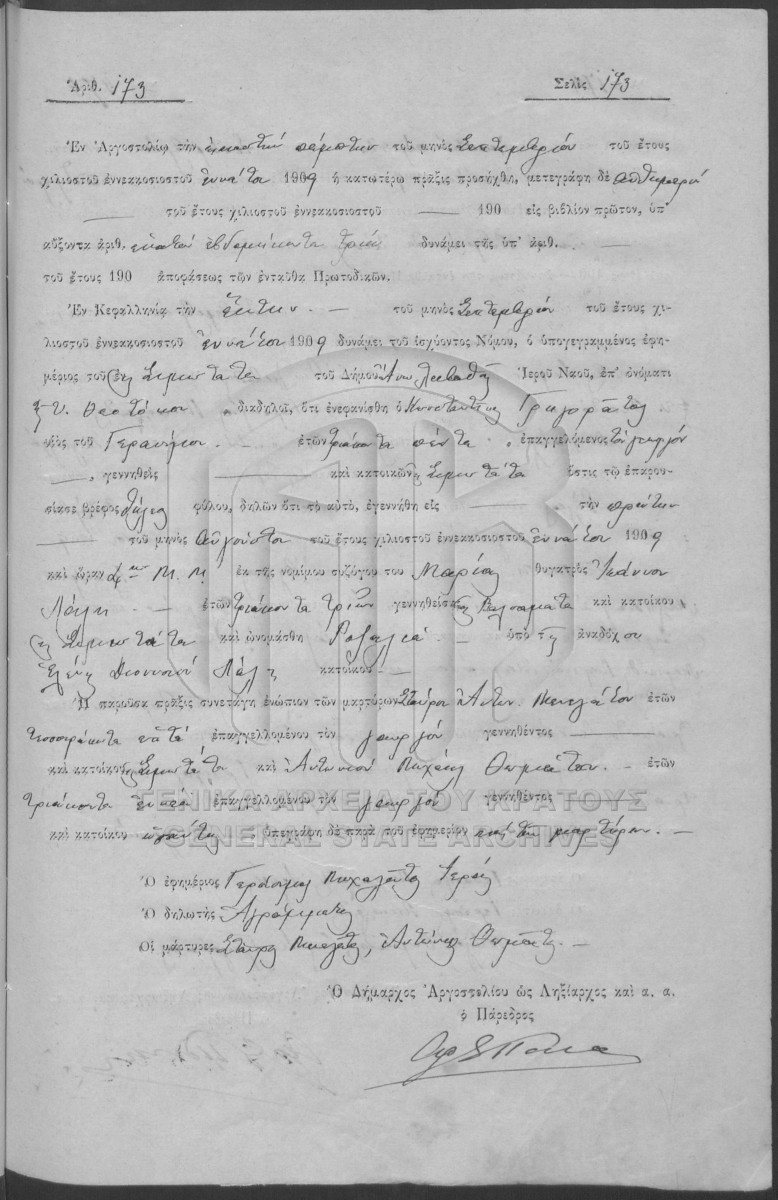 Ἀριθ. 173
Σελὶς 173
Ἐν Ἀργοστολίῳ τὴν εἰκοστὴν πέμπτην τοῦ μηνὸς Σεπτεμβρίου τοῦ ἔτους
χιλιοστοῦ ἐννεακοσιοστοῦ ἐννάτου 1909 ἡ κατωτέρω πρᾶξις προσήχθη, μετεγράφη δὲ αὐθημερὸν
τοῦ ἔτους χιλιοστοῦ ἐννεακοσιοστοῦ — 190 εἰς βιβλίον πρῶτον, ὑπ'
αὔξοντα ἀριθ. ἑκατὸν ἑβδομήκοντα τρία δυνάμει τῆς ὑπ' ἀριθ. —
τοῦ ἔτους 190 ἀποφάσεως τῶν ἐνταῦθα Πρωτοδικῶν.
Ἐν Κεφαλληνίᾳ τὴν ἕκτην — τοῦ μηνὸς Σεπτεμβρίου τοῦ ἔτους χι-
λιοστοῦ ἐννεακοσιοστοῦ ἐννάτου 1909 δυνάμει τοῦ ἰσχύοντος Νόμου, ὁ ὑπογεγραμμένος ἐφη-
μέριος τοῦ ἐν Σιμωτάτα τοῦ Δήμου Ἄνω Λειβαθοῦς Ἱεροῦ Ναοῦ, ἐπ' ὀνόματι
Θεοτόκου διαδηλοῖ, ὅτι ἐνεφανίσθη ὁ Κωνσταντῖνος Γρηγορᾶτος
υἱὸς τοῦ Γερασίμου — ἐτῶν τριάκοντα πέντε ἐπαγγελόμενος τὸν γεωργὸν
— , γεννηθεὶς — καὶ κατοικῶν ἐν Σιμωτάτα ὅστις τῷ ἐπαρου-
σίασε βρέφος θήλεος φύλου, δηλῶν ὅτι τὸ αὐτὸ, ἐγεννήθη εἰς — τὴν πρώτην
— τοῦ μηνὸς Αὐγούστου τοῦ ἔτους χιλιοστοῦ ἐννεακοσιοστοῦ ἐννάτου 1909
καὶ ὥραν Μ. Μ. ἐκ τῆς νομίμου συζύγου του Μαρίας θυγατρὸς Ἰωάννου
Λάλη — ἐτῶν τριάκοντα τριῶν γεννηθείσης ἐν Βαλσαμάτα καὶ κατοίκου
ἐν Σιμωτάτα καὶ ὠνομάσθη Ροζαλία — ὑπὸ τῆς ἀναδόχου
Ἑλένης Διονυσίου Λάλη κατοίκου —
Ἡ παροῦσα πρᾶξις συνετάγη ἐνώπιον τῶν μαρτύρων Σταύρου Ἀντων. ἐτῶν
τεσσαράκοντα ἑπτὰ ἐπαγγελλομένου τὸν γεωργὸν γεννηθέντος —
καὶ κατοίκου ἐν Σιμωτάτα καὶ Ἀντωνίου Μιχαὴλ Θωμάτου — ἐτῶν
τριάκοντα ἐννέα ἐπαγγελλομένου τὸν γεωργὸν γεννηθέντος —
καὶ κατοίκου ὡσαύτως ὑπεγράφη δὲ παρὰ τοῦ ἐφημερίου καὶ τῶν μαρτύρων. —
ΓΕΝΙΚΑ ΑΡΧΕΙΑ ΤΟΥ ΚΡΑΤΟΥΣ
GENERAL STATE ARCHIVES
Ὁ ἐφημέριος Γεράσιμος Μιχαλᾶτος Ἱερεύς
Ὁ δηλωτὴς Ἀγράμματος
Οἱ μάρτυρες Σταῦρος , Ἀντώνιος Θωμᾶτος. —
Ὁ Δήμαρχος Ἀργοστολίου ὡς Ληξίαρχος καὶ α. α.
ὁ Πάρεδρος